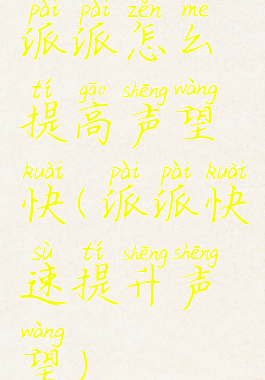 pài pài zěn me
派派怎么
tí gāo shēng wàng
提高声望
kuài pài pài kuài
快(派派快
sù tí shēng shēng
速提升声
wàng
望)